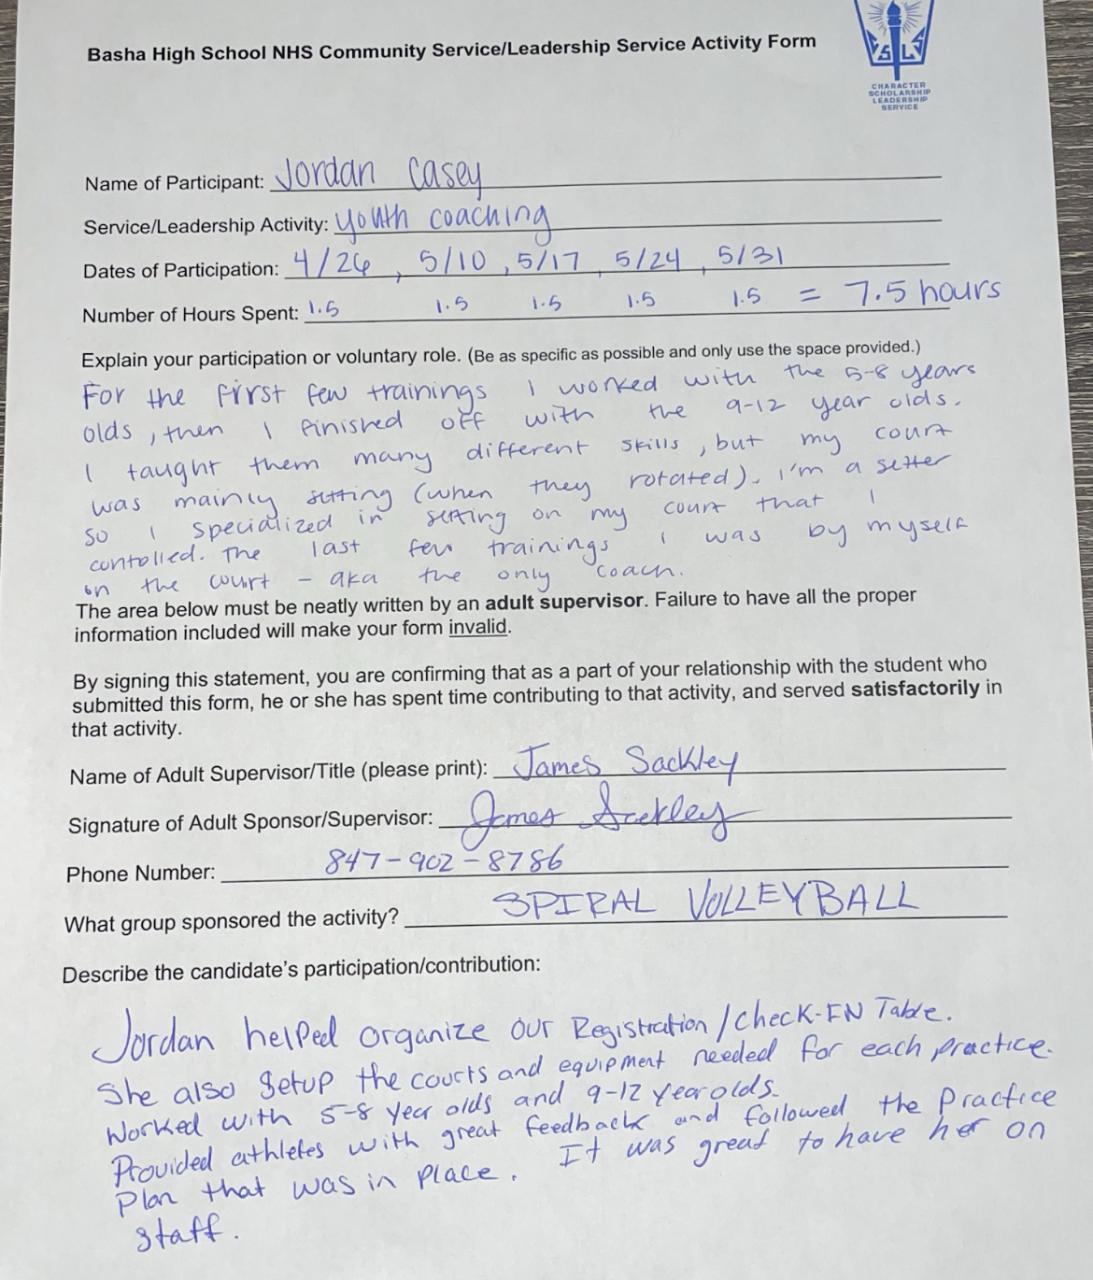 Basha High School NHS Community Service/Leadership Service Activity Form
S L S
CHARACTER
SCHOLARSHIP
LEADERSHIP
SERVICE
Name of Participant: Jordan Casey
Service/Leadership Activity: youth coaching
Dates of Participation: 4/26, 5/10, 5/17, 5/24, 5/31
Number of Hours Spent: 1.5 1.5 1.5 1.5 1.5 = 7.5 hours
Explain your participation or voluntary role. (Be as specific as possible and only use the space provided.)
For the first few trainings I worked with the 5-8 years
olds, then I finished off with the 9-12 year olds.
I taught them many different skills, but my court
was mainly setting (when they rotated). I'm a setter
so I specialized in setting on my court that I
contolled. The last few trainings I was by myself
on the court - aka the only coach.
The area below must be neatly written by an adult supervisor. Failure to have all the proper
information included will make your form invalid.
By signing this statement, you are confirming that as a part of your relationship with the student who
submitted this form, he or she has spent time contributing to that activity, and served satisfactorily in
that activity.
Name of Adult Supervisor/Title (please print): James Sackley
Signature of Adult Sponsor/Supervisor: James Sackley
Phone Number: 847-902-8786
What group sponsored the activity? SPIRAL VOLLEYBALL
Describe the candidate's participation/contribution:
Jordan helped organize our Registration/check-IN Table.
She also setup the courts and equipment needed for each practice.
Worked with 5-8 year olds and 9-12 year olds.
Provided athletes with great feedback and followed the Practice
Plan that was in place. It was great to have her on
staff.